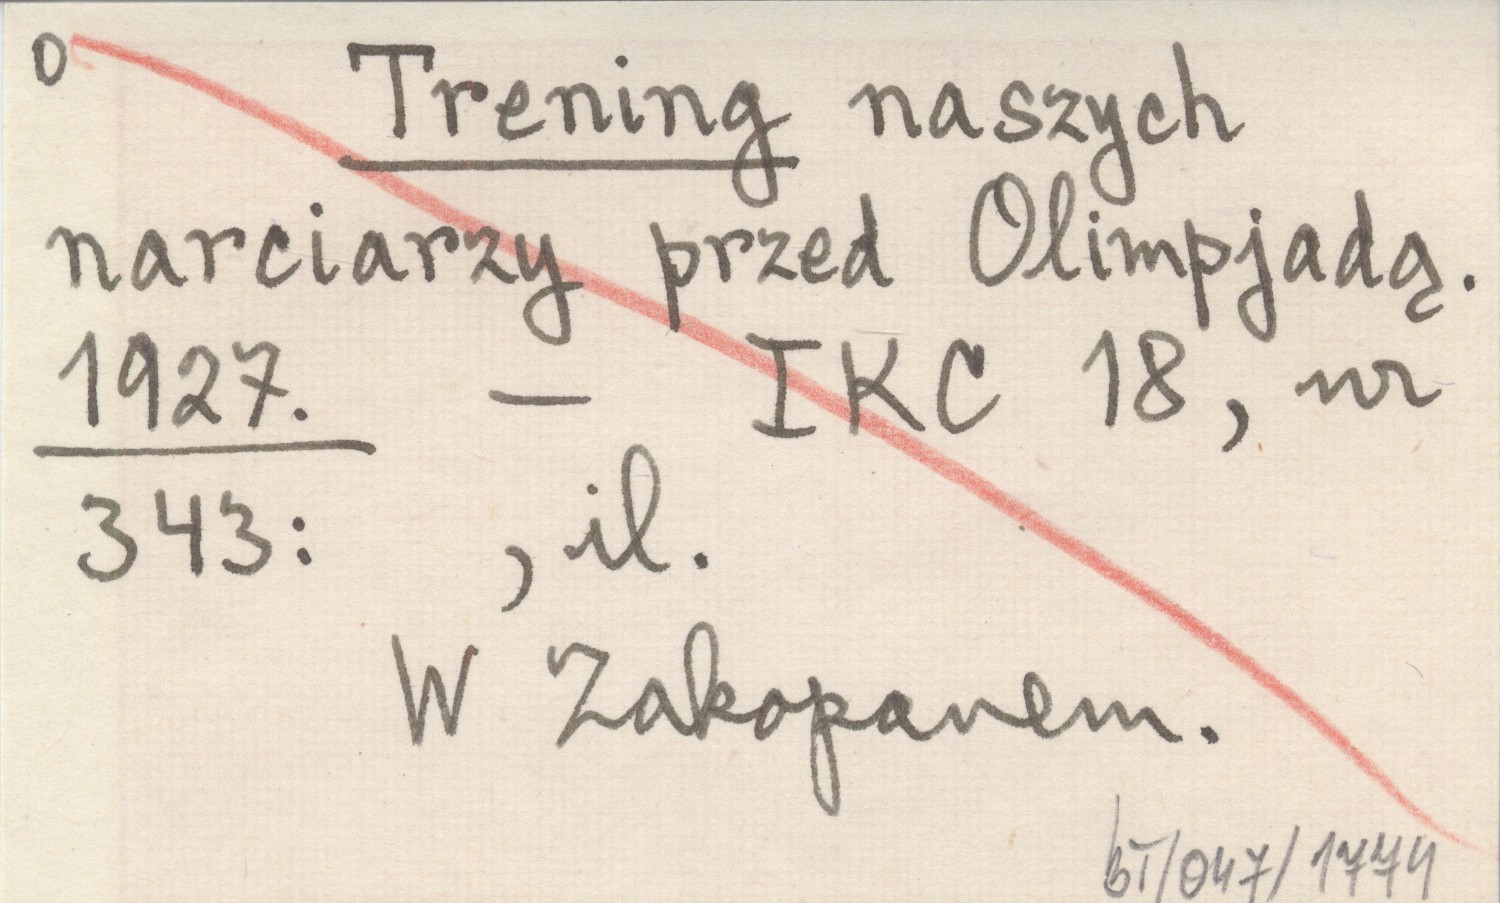 0 Trening naszych
narciarzy przed Olimpjadą.
1927. — IKC 18, nr
343: , il.
W Zakopanem.
BT/047/1774